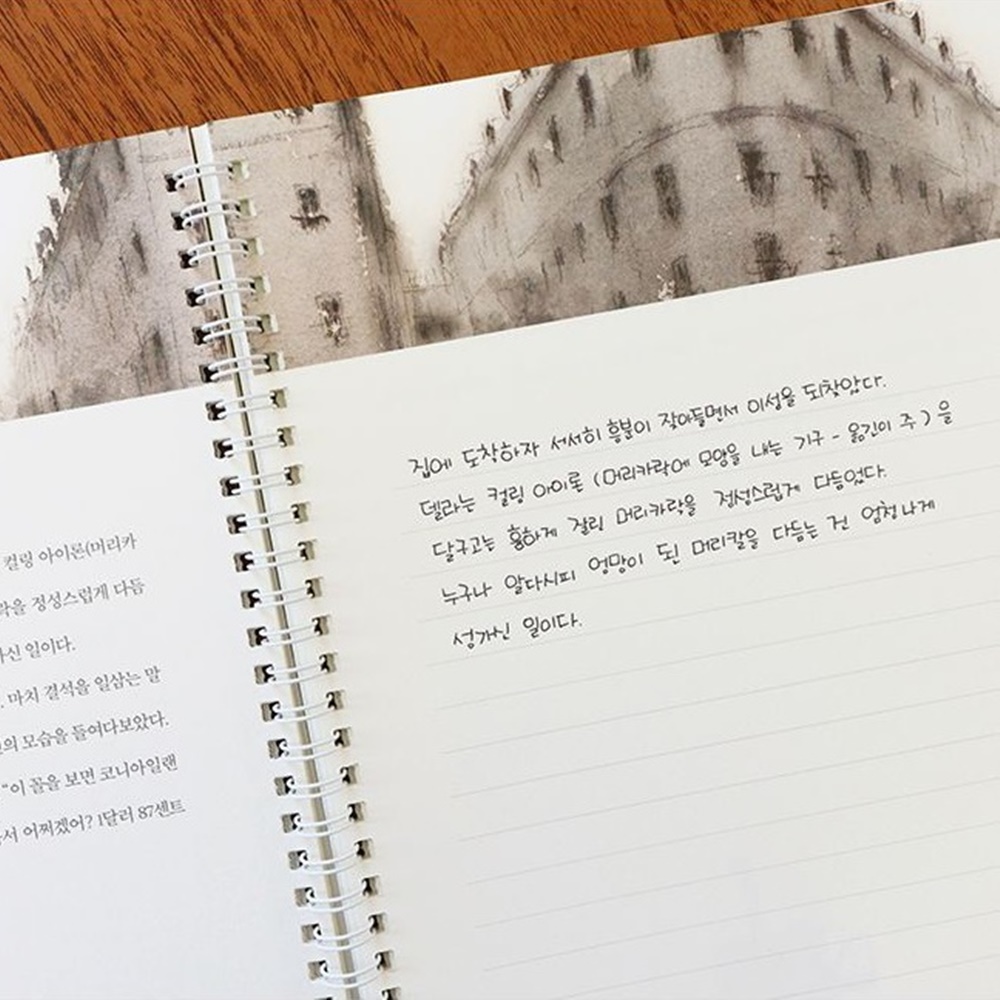 컬링 아이론(머리카
락을 정성스럽게 다듬
신 일이다.
마치 결석을 일삼는 말
의 모습을 들여다보았다.
“이 꼴을 보면 코니아일랜
서 어쩌겠어? 1달러 87센트
집에 도착하자 서서히 흥분이 잦아들면서 이성을 되찾았다.
델라는 컬링 아이론 (머리카락에 모양을 내는 기구 - 옮긴이 주)을
달구고는 흉하게 잘린 머리카락을 정성스럽게 다듬었다.
누구나 알다시피 엉망이 된 머리칼을 다듬는 건 엄청나게
성가신 일이다.